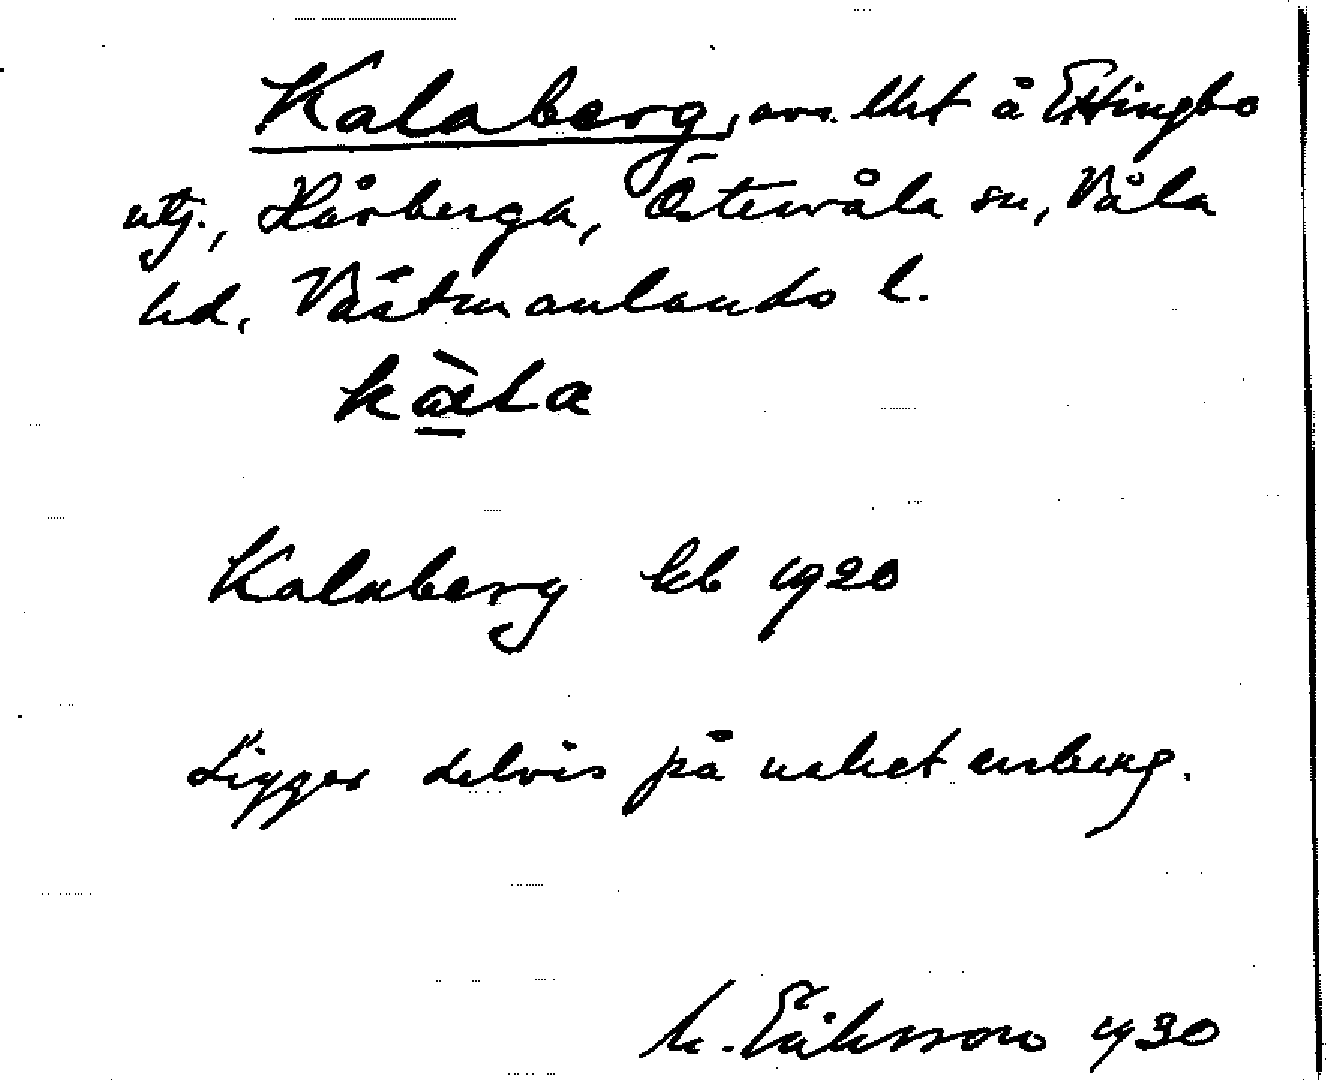 Kalaberg, avs. lht å Ettingbo
utj., Hårberga, Östervåla sn, Våla
hd, Västmanlands l.
kàla
Kalaberg kb 1920
Ligger delvis på naket enberg.
M. Eriksson 1930